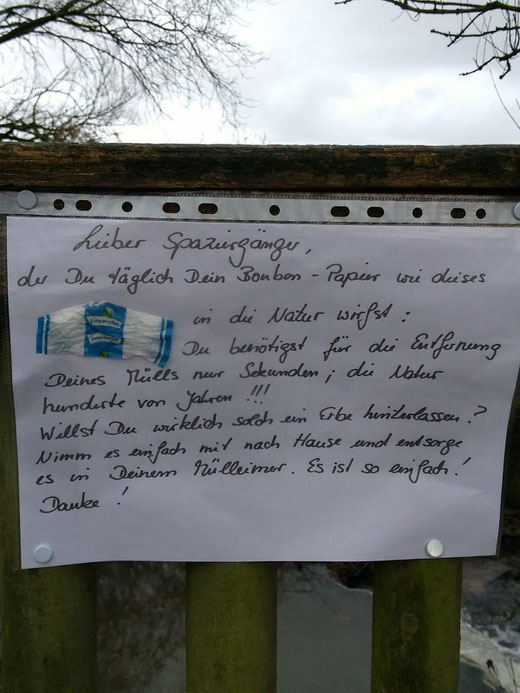 Lieber Spaziergänger,
der Du täglich Dein Bonbon-Papier wie dieses
in die Natur wirfst:
Du benötigst für die Entfernung
Deines Mülls nur Sekunden; die Natur
hunderte von Jahren!!!
Willst Du wirklich solch ein Erbe hinterlassen?
Nimm es einfach mit nach Hause und entsorge
es in Deinem Mülleimer. Es ist so einfach!
Danke!